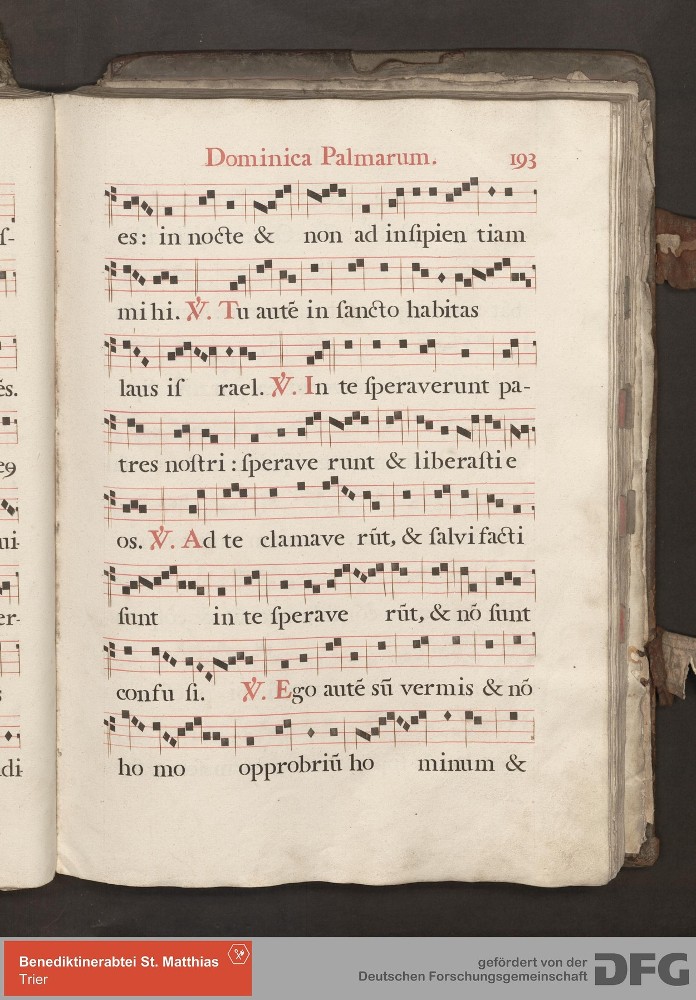 Dominica Palmarum. 193
es: in nocte & non ad inſipien tiam
mi hi. ℣. Tu autē in ſancto habitas
laus iſ rael. ℣. In te ſperaverunt pa-
tres noſtri : ſperave runt & liberaſti e
os. ℣. Ad te clamave rūt, & ſalvi facti
ſunt in te ſperave rūt, & nō ſunt
confu ſi. ℣. Ego autē sū vermis & nō
ho mo opprobriū ho minum &
ſ-
ēs.
e9
ui-
er-
s
di-
Benediktinerabtei St. Matthias
Trier
gefördert von der
Deutschen Forschungsgemeinschaft
DFG